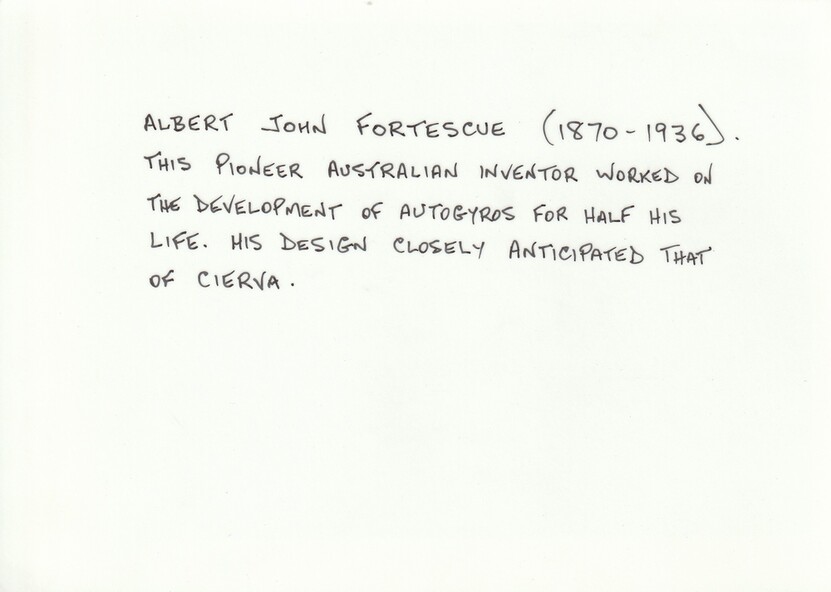 ALBERT JOHN FORTESCUE (1870-1936).
THIS PIONEER AUSTRALIAN INVENTOR WORKED ON
THE DEVELOPMENT OF AUTOGYROS FOR HALF HIS
LIFE. HIS DESIGN CLOSELY ANTICIPATED THAT
OF CIERVA.